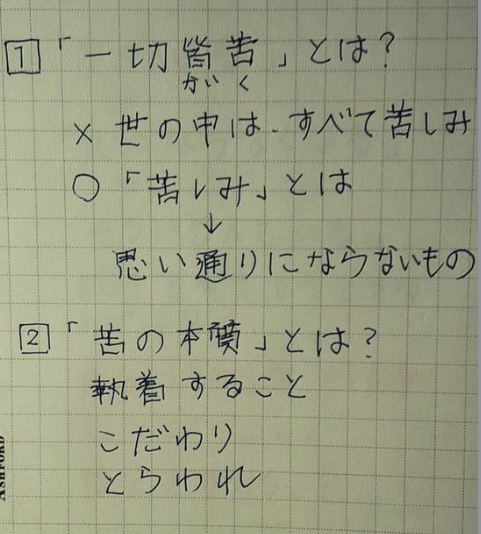 1 「一切皆苦」とは？
かいく
× 世の中は、すべて苦しみ
○ 「苦しみ」とは
↓
思い通りにならないもの
2 「苦の本質」とは？
執着すること
こだわり
とらわれ
ASHFORD